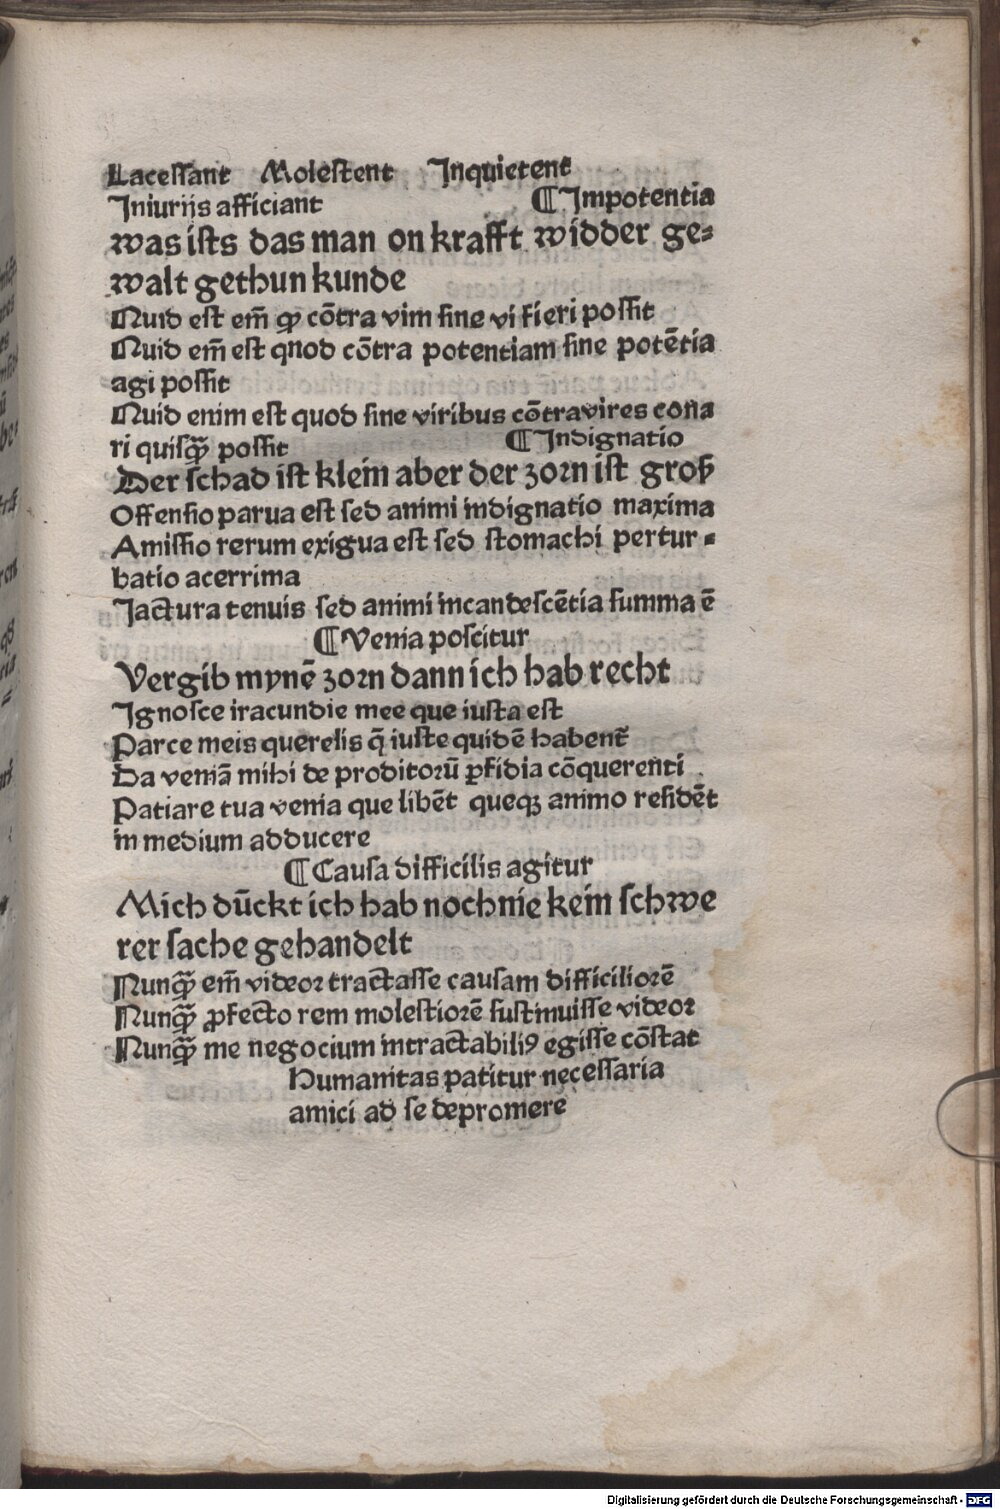 Lacessant Molestent Inquietent
Iniurijs afficiant ¶ Impotentia
was ists das man on krafft widder ge-
walt gethun kunde
Quid est em̄ ꝙ cōtra vim sine vi fieri possit
Quid em̄ est quod cōtra potentiam sine potētia
agi possit
Quid enim est quod sine viribus cōtra vires cona
ri quisq̃ possit ¶ Indignatio
Der schad ist klein aber der zorn ist groß
Offensio parua est sed animi indignatio maxima
Amissio rerum exigua est sed stomachi pertur-
batio acerrima
Jactura tenuis sed animi incandescētia summa ē
¶ Venia poscitur
Vergib mynē zorn dann ich hab recht
Ignosce iracundie mee que iusta est
Parce meis querelis q̄ iuste quidē habent᷑
Da veniā mihi de proditorū ꝑfidia cōquerenti
Patiare tua venia que libēt queqꝫ animo residēt
in medium adducere
¶ Causa difficilis agitur
Mich dūckt ich hab noch nie kein schwe
rer sache gehandelt
Nunq̃ em̄ videor tractasse causam difficiliorē
Nunq̃ ꝓfecto rem molestiorē sustinuisse videor
Nunq̃ me negocium intractabiliꝰ egisse cōstat
Humanitas patitur necessaria
amici ad se depromere
Digitalisierung gefördert durch die Deutsche Forschungsgemeinschaft - DFG